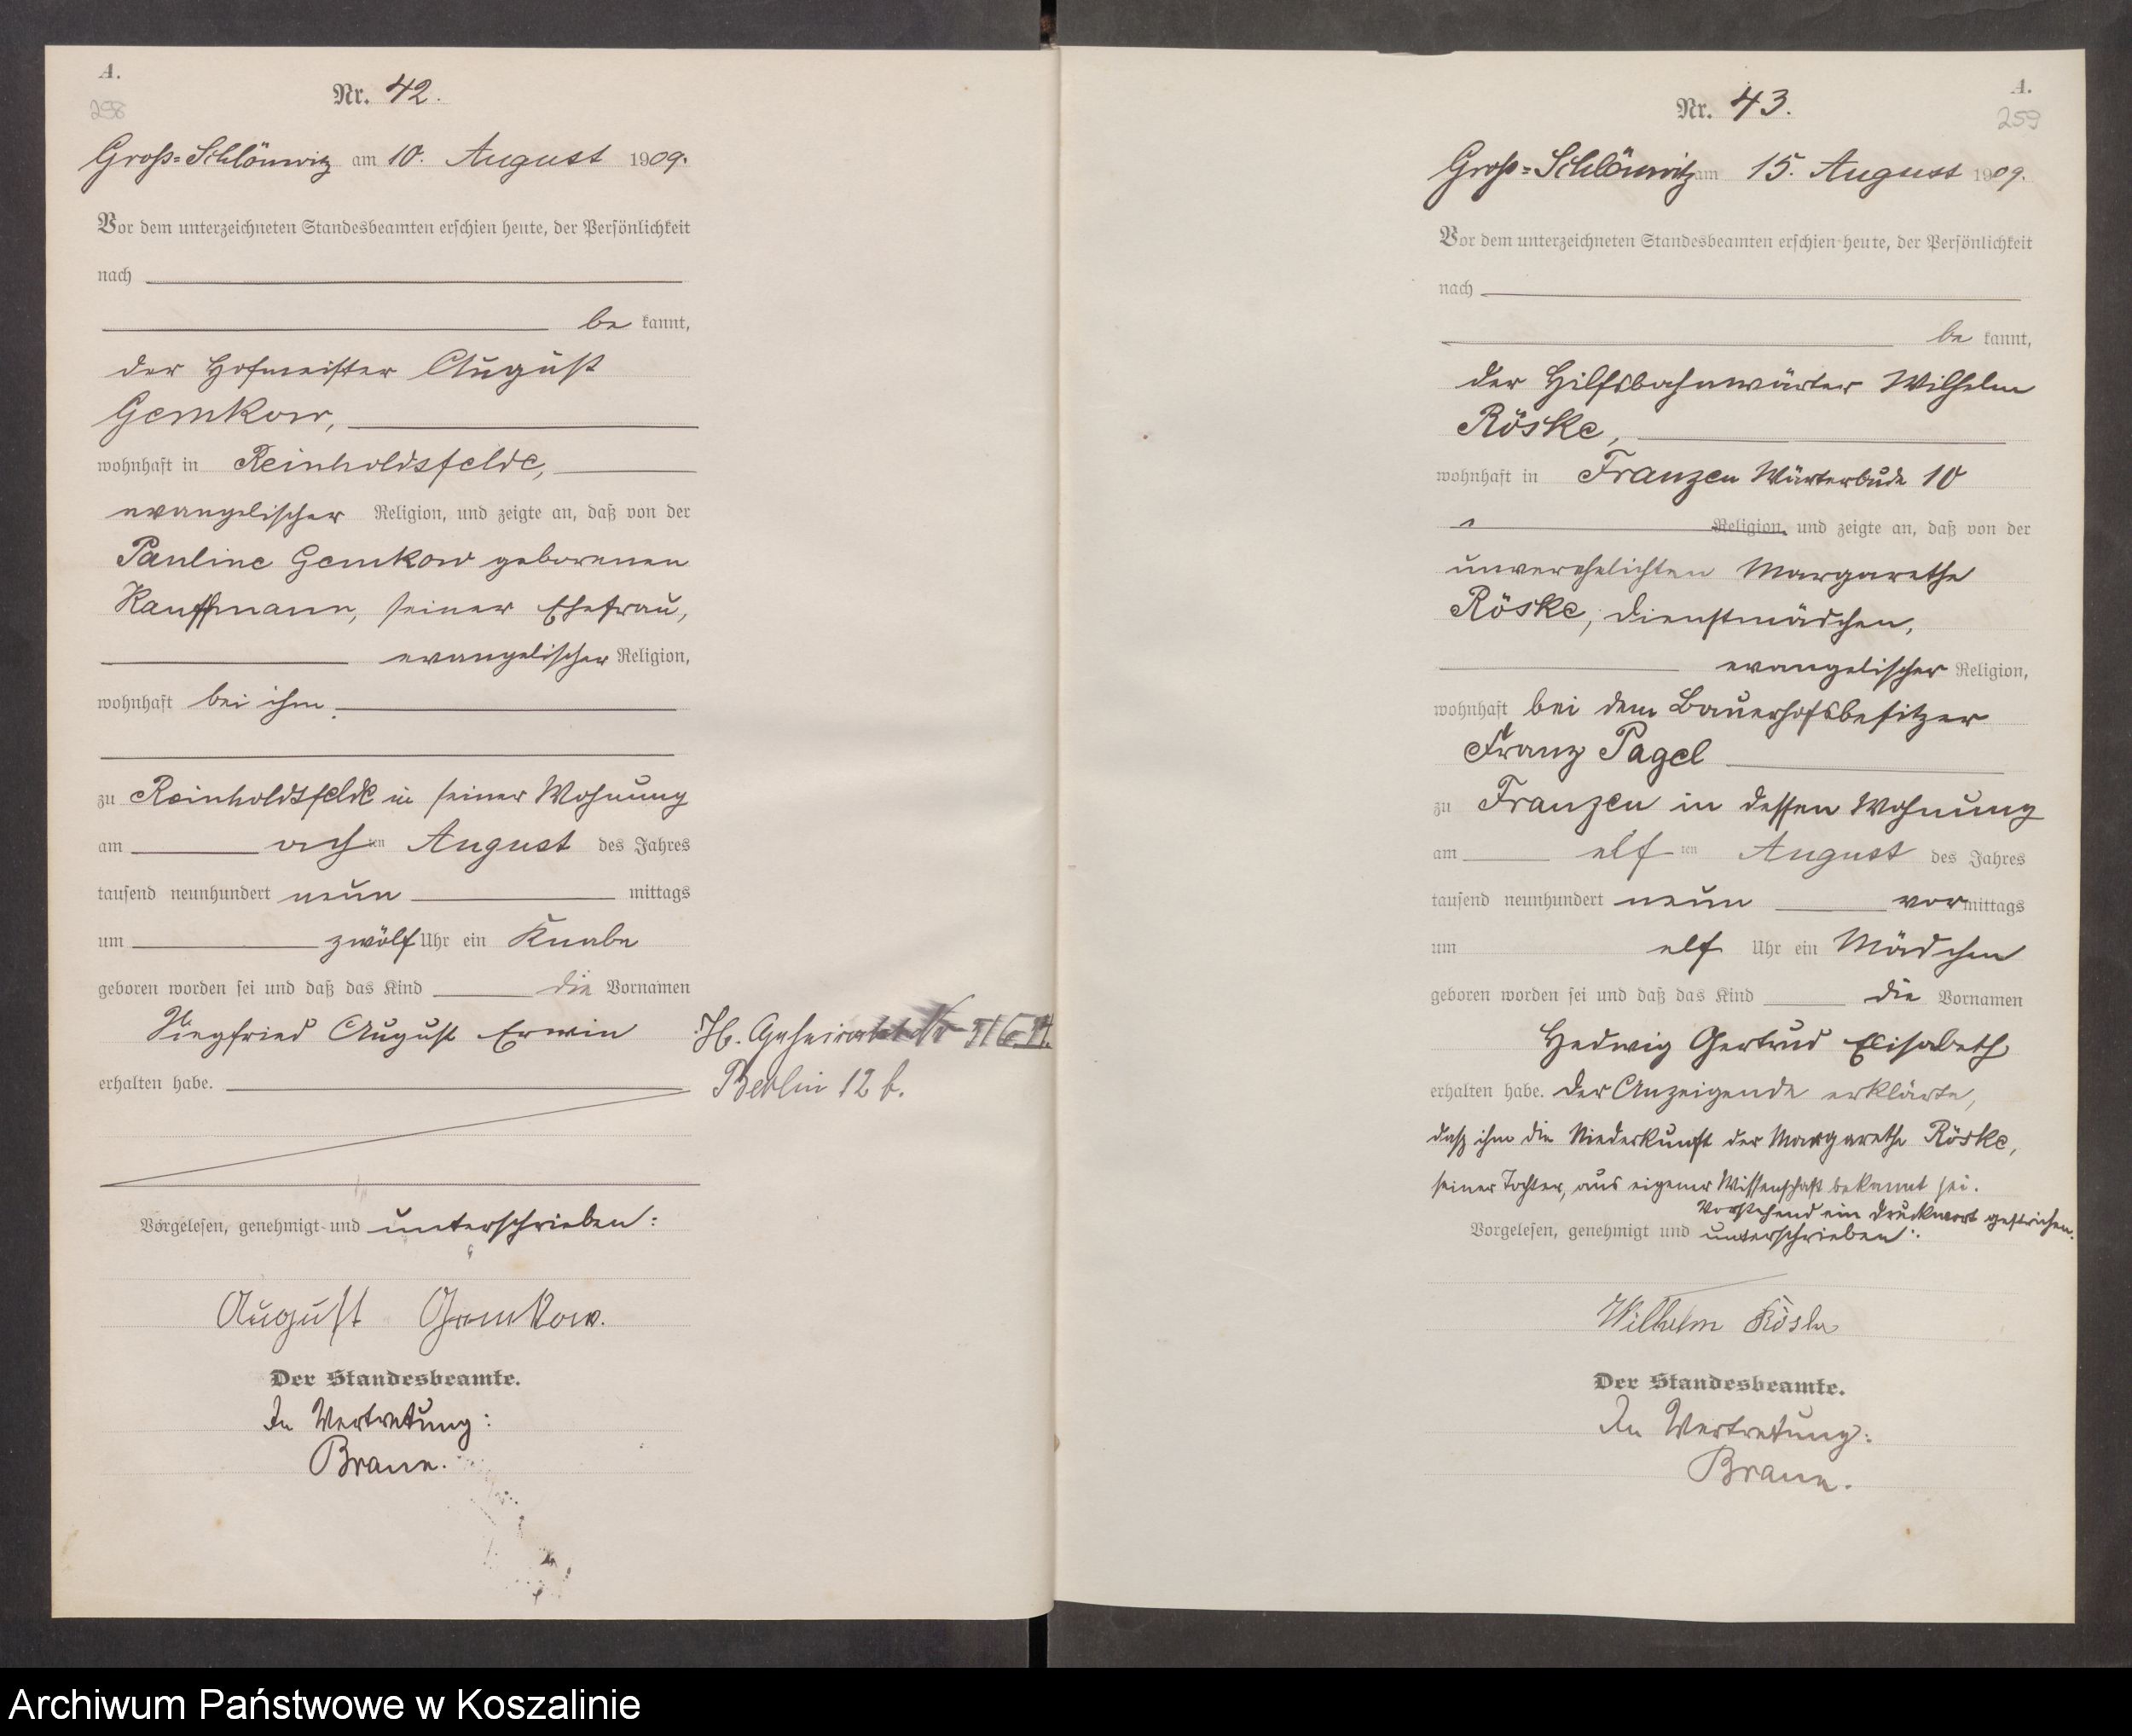 A.
258
Nr. 42.
Groß=Schlönwitz am 10. August 1909.
Vor dem unterzeichneten Standesbeamten erschien heute, der Persönlichkeit
nach
be kannt,
der Hofmeister August
Gemkow,
wohnhaft in Reinholdsfelde,
evangelischer Religion, und zeigte an, daß von der
Pauline Gemkow geborenen
Kauffmann, seiner Ehefrau,
evangelischer Religion,
wohnhaft bei ihm
zu Reinholdsfelde in seiner Wohnung
am ach ten August des Jahres
tausend neunhundert neun mittags
um zwölf Uhr ein Knabe
geboren worden sei und daß das Kind die Vornamen
Siegfried August Erwin
erhalten habe.
Vorgelesen, genehmigt und unterschrieben:
August Gemkow.
Der Standesbeamte.
In Vertretung:
Braun.
H. Geheiratet
Berlin 12 b.
A.
259
Nr. 43.
Groß=Schlönwitz am 15. August 1909.
Vor dem unterzeichneten Standesbeamten erschien heute, der Persönlichkeit
nach
be kannt,
der Hilfsbahnwärter Wilhelm
Röske,
wohnhaft in Franzen Wärterbude 10
Religion, und zeigte an, daß von der
unverehelichten Margarethe
Röske, Dienstmädchen,
evangelischer Religion,
wohnhaft bei dem Bauerhofsbesitzer
Franz Pagel
zu Franzen in dessen Wohnung
am elf ten August des Jahres
tausend neunhundert neun vor mittags
um elf Uhr ein Mädchen
geboren worden sei und daß das Kind die Vornamen
Hedwig Gertrud Elisabeth
erhalten habe. Der Anzeigende erklärte,
daß ihm die Niederkunft der Margarethe Röske,
seiner Tochter, aus eigener Wissenschaft bekannt sei.
Vorstehend ein Druckwort gestrichen.
Vorgelesen, genehmigt und unterschrieben:
Wilhelm Röske
Der Standesbeamte.
In Vertretung:
Braun.
Archiwum Państwowe w Koszalinie